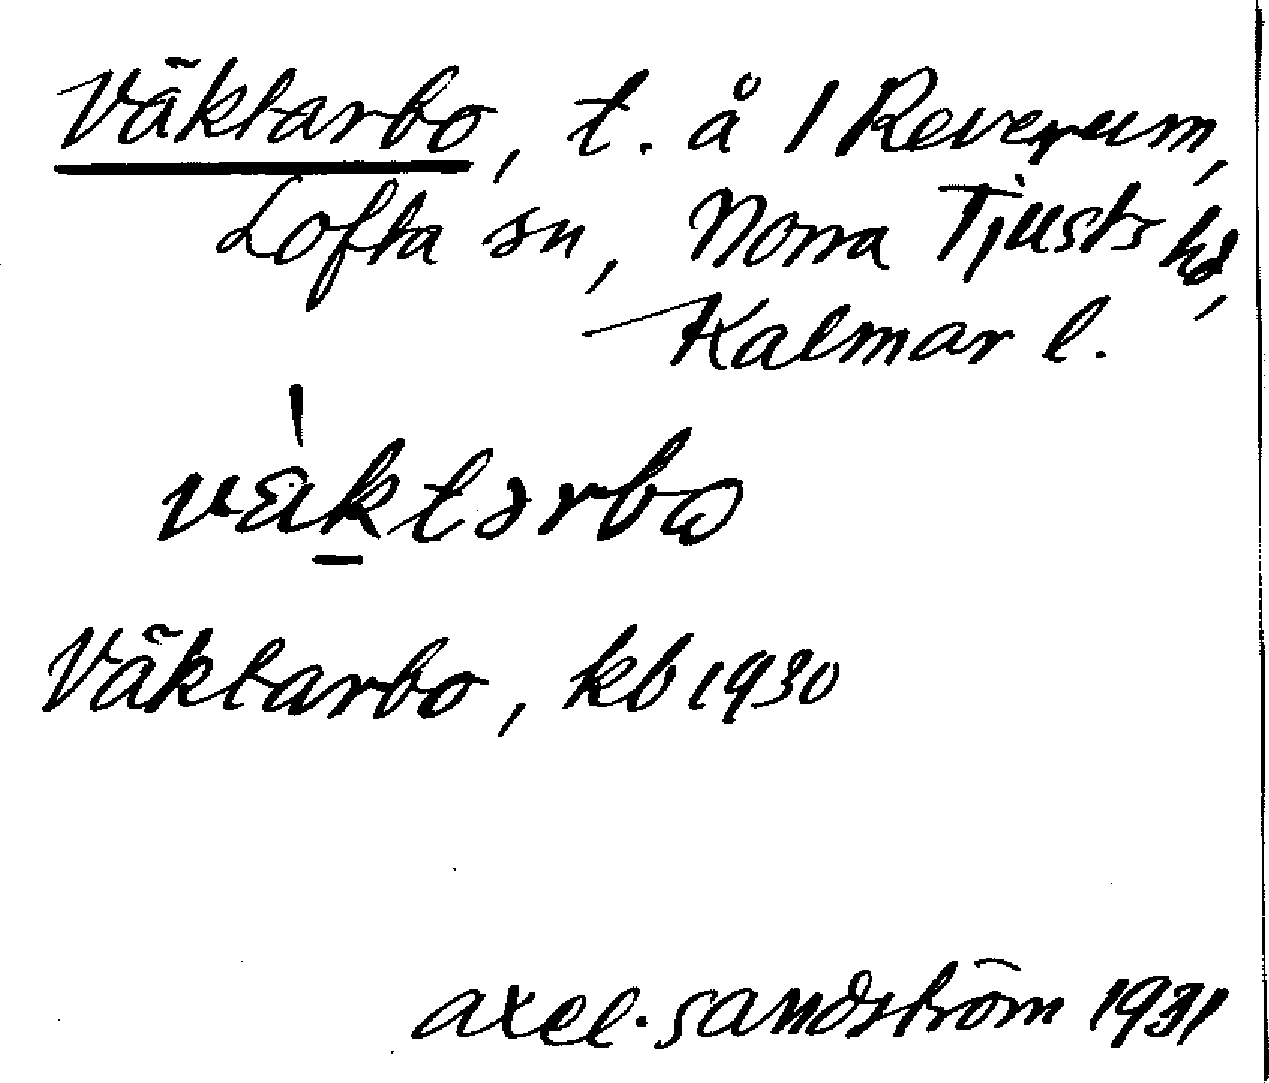 Väktarbo, t. å 1 Reverum,
Lofta sn, Norra Tjusts hd,
Kalmar l.
väktərbo
Väktarbo, kb 1930
axel. sandström 1931